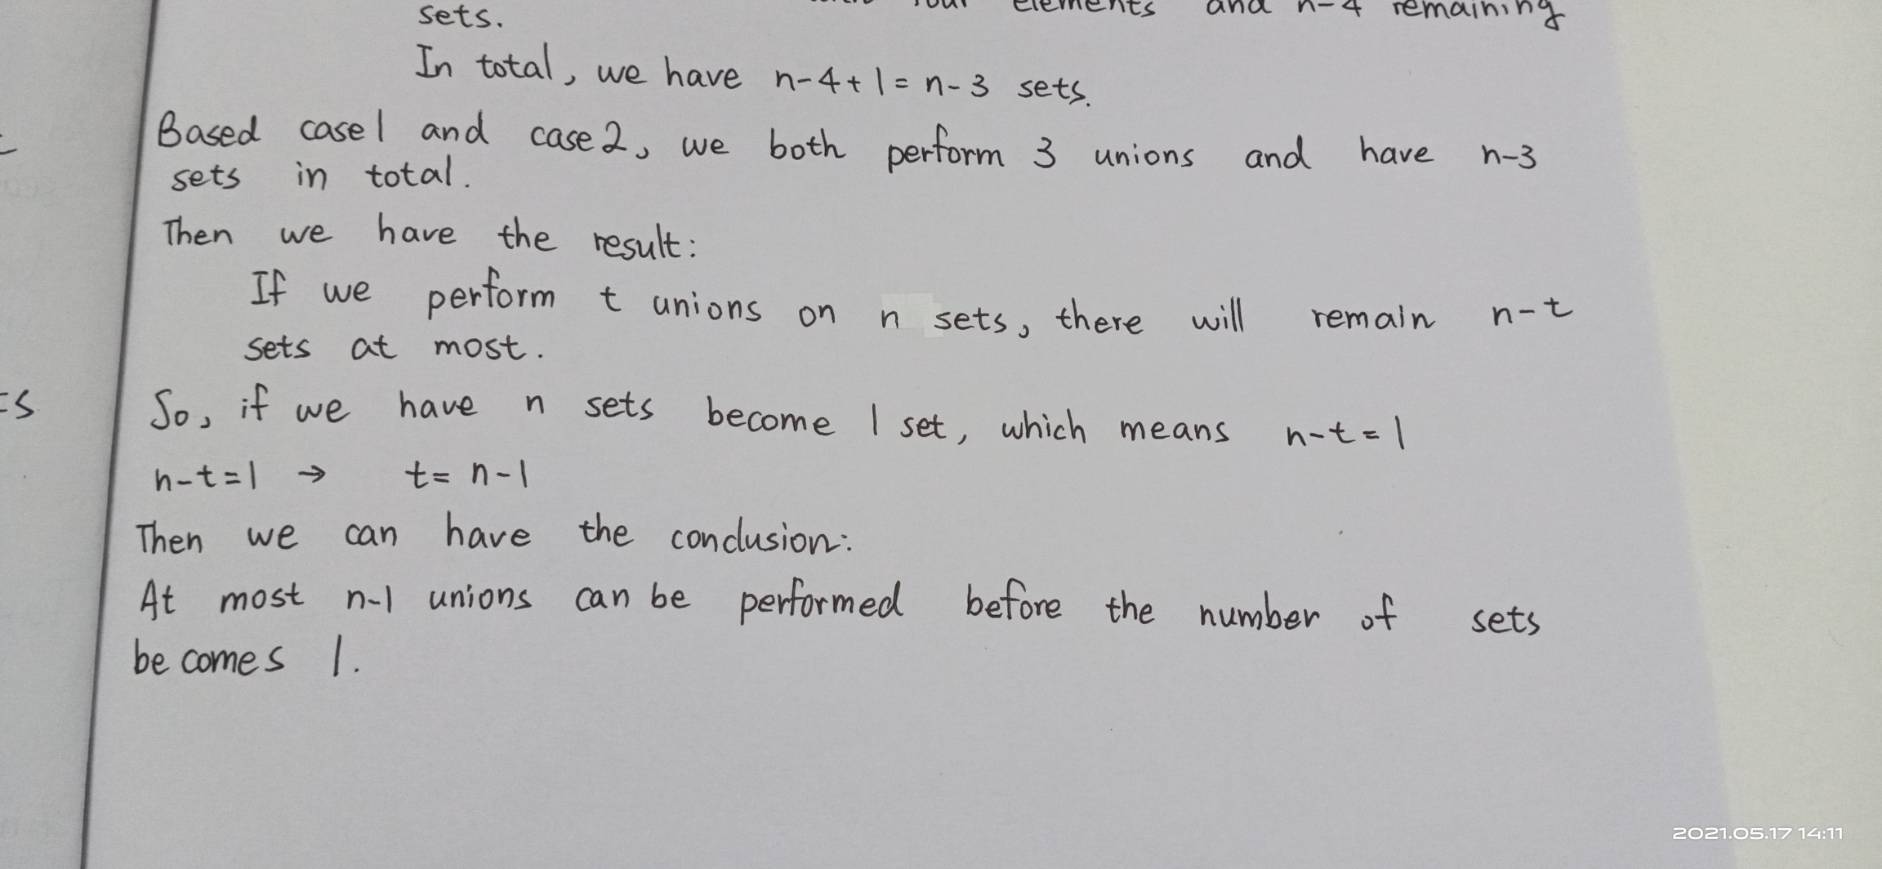 elements and n-4 remaining
sets.
In total, we have n-4+1=n-3 sets.
Based case1 and case2, we both perform 3 unions and have n-3
sets in total.
Then we have the result:
If we perform t unions on n sets, there will remain n-t
sets at most.
So, if we have n sets become 1 set, which means n-t=1
n-t=1 → t= n-1
Then we can have the conclusion:
At most n-1 unions can be performed before the number of sets
becomes 1.
2021.05.17 14:11